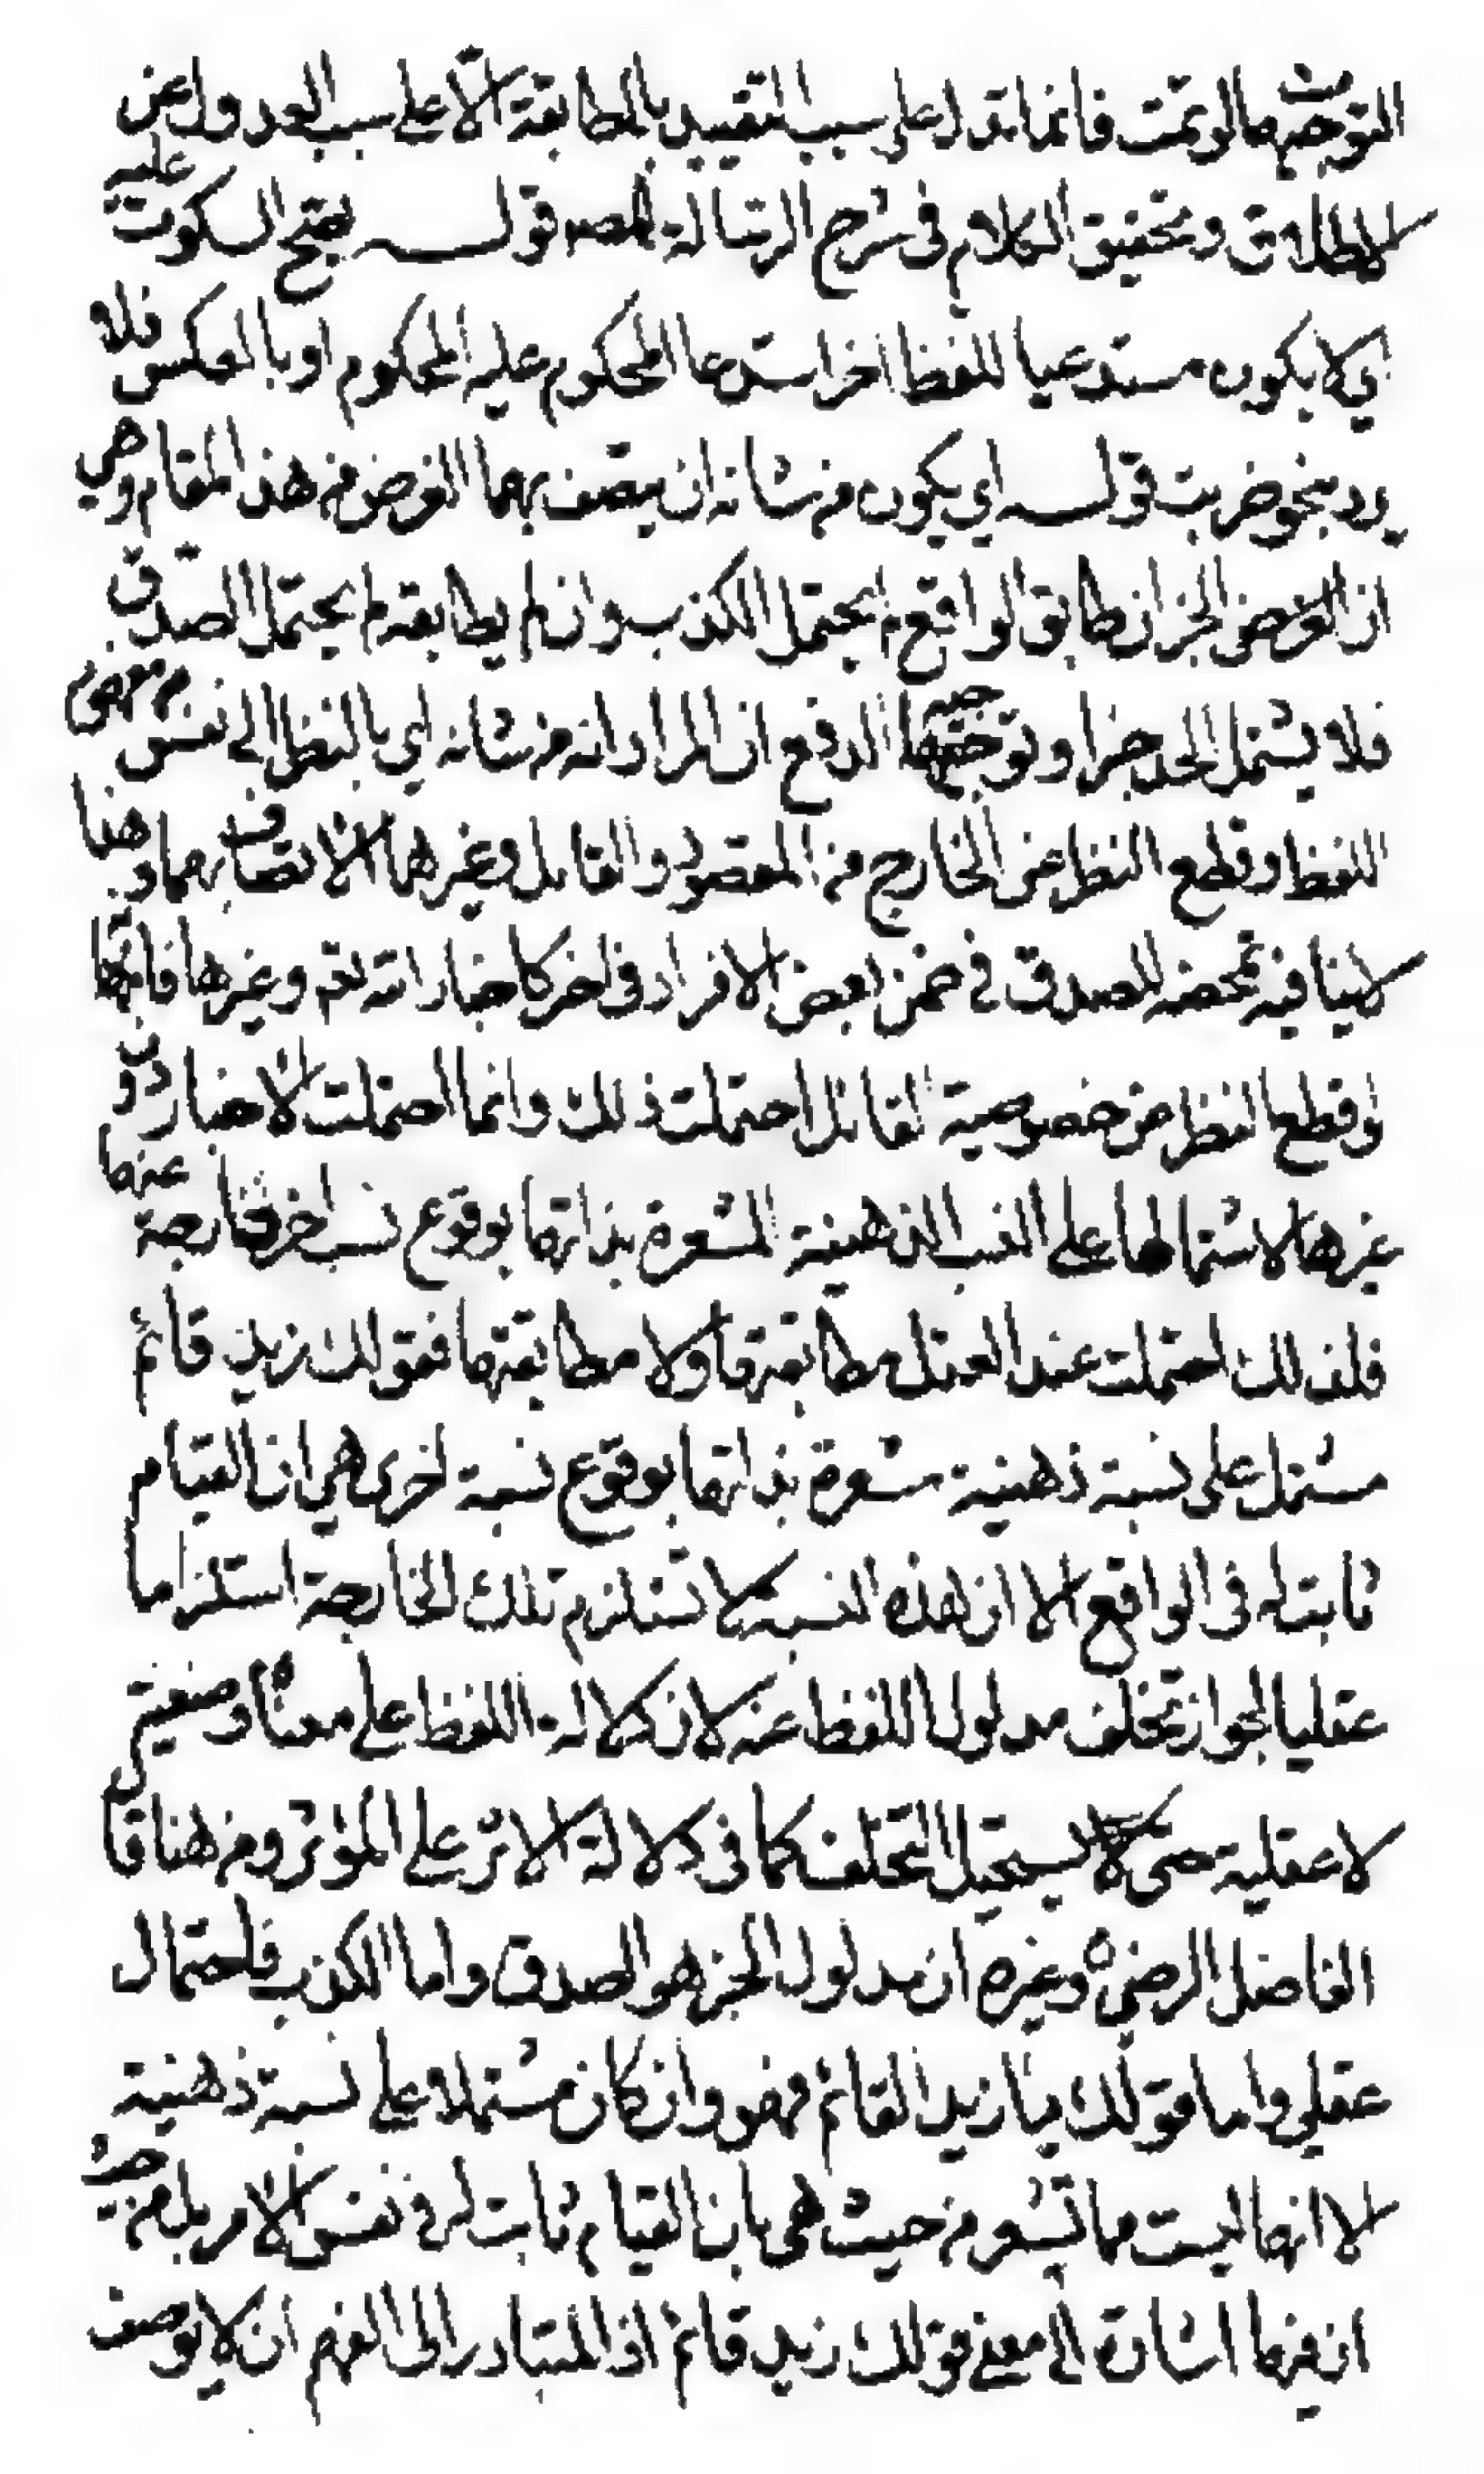 التوجيهات لو تمت فانما تدل على سبب التقييد بالمطابقة لا على سبب العدول عن
الاطلاق وتحقيق الكلام في شرح الرسالة للمص قوله يصح السكوت عليه
اي لا يكون مستدعيا للفظ اخر استدعا المحكوم عليه المحكوم او بالعكس فلا
يرد بنحو ضربت قوله اي يكون من شانه ان يتصف بهما الغرض من هذا المقام وهي
ان الغرض الخبر ان طابق الواقع لم يحتمل الكذب وان لم يطابقه لم يحتمل الصدق
فلا يشتمل الحد خبرا وتوجيه الدفع ان المراد انه من شانه اي بالنظر الى نفس مفهوم
اللفظ وقطع النظر عن الخارج من المقصود والقايل وغيرها الاتصاف بهما وهذا
لا ينافيه تمحضه للصدق في ضمن بعض الافراد كاخبار الله تعم وغيرها فانها
لو قطع النظر عن خصوصية القائل احتملت ذلك وانما احتملت الاخبار دون
غيرها لاشتمالها على النسب الذهنية المشعرة بذاتها بوقوع نسب اخر خارجة عنها
فلذلك احتملت عند العقل مطابقتها ولا مطابقتها فقولك زيد قائم
مشتمل على نسبة ذهنية مشعرة بذاتها بوقوع نسبة اخرى هي ان القيام
ثابت له في الواقع الا ان هذه النسبة لا تستلزم تلك الخارجة استلزاما
عقليا لجواز تخلف مدلول اللفظ عنه لان دلالة اللفظ على معناه وضعية
لا عقلية حتى يستحيل التخلف كما في دلالة الاثر على المؤثر ومن هنا قال
الفاضل الرضي وغيره ان مدلول الخبر هو الصدق واما الكذب فاحتمال
عقلي واما قولك يا زيد القائم فهو وان كان مشتملا على نسبة ذهنية
الا انها ليست مما تشعر من حيث هي بان القيام ثابت له في نفس الامر بل من حيث
ان فيها اشارة الى معنى قولك زيد قائم اذ المتبادر الى الفهم ان لا يوصف